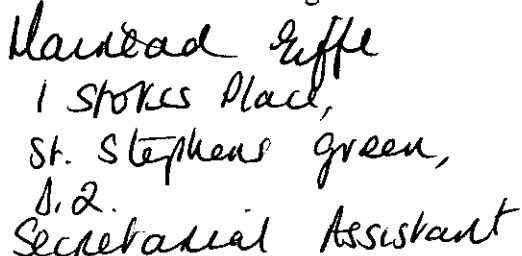 Mairead Eiffe
1 Stokes Place,
St. Stephens Green,
D.2.
Secretarial Assistant